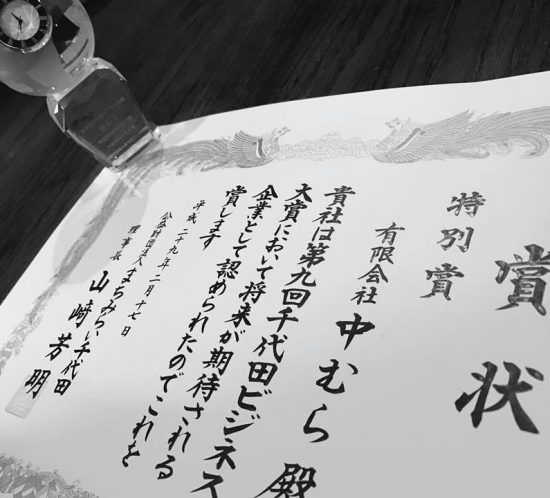 賞状
特別賞
有限会社
中むら 殿
貴社は第九回千代田ビジネス
大賞において将来が期待される
企業として認められたのでこれを
賞します
平成二十九年二月十七日
公益財団法人まちみらい千代田
理事長 山﨑芳明